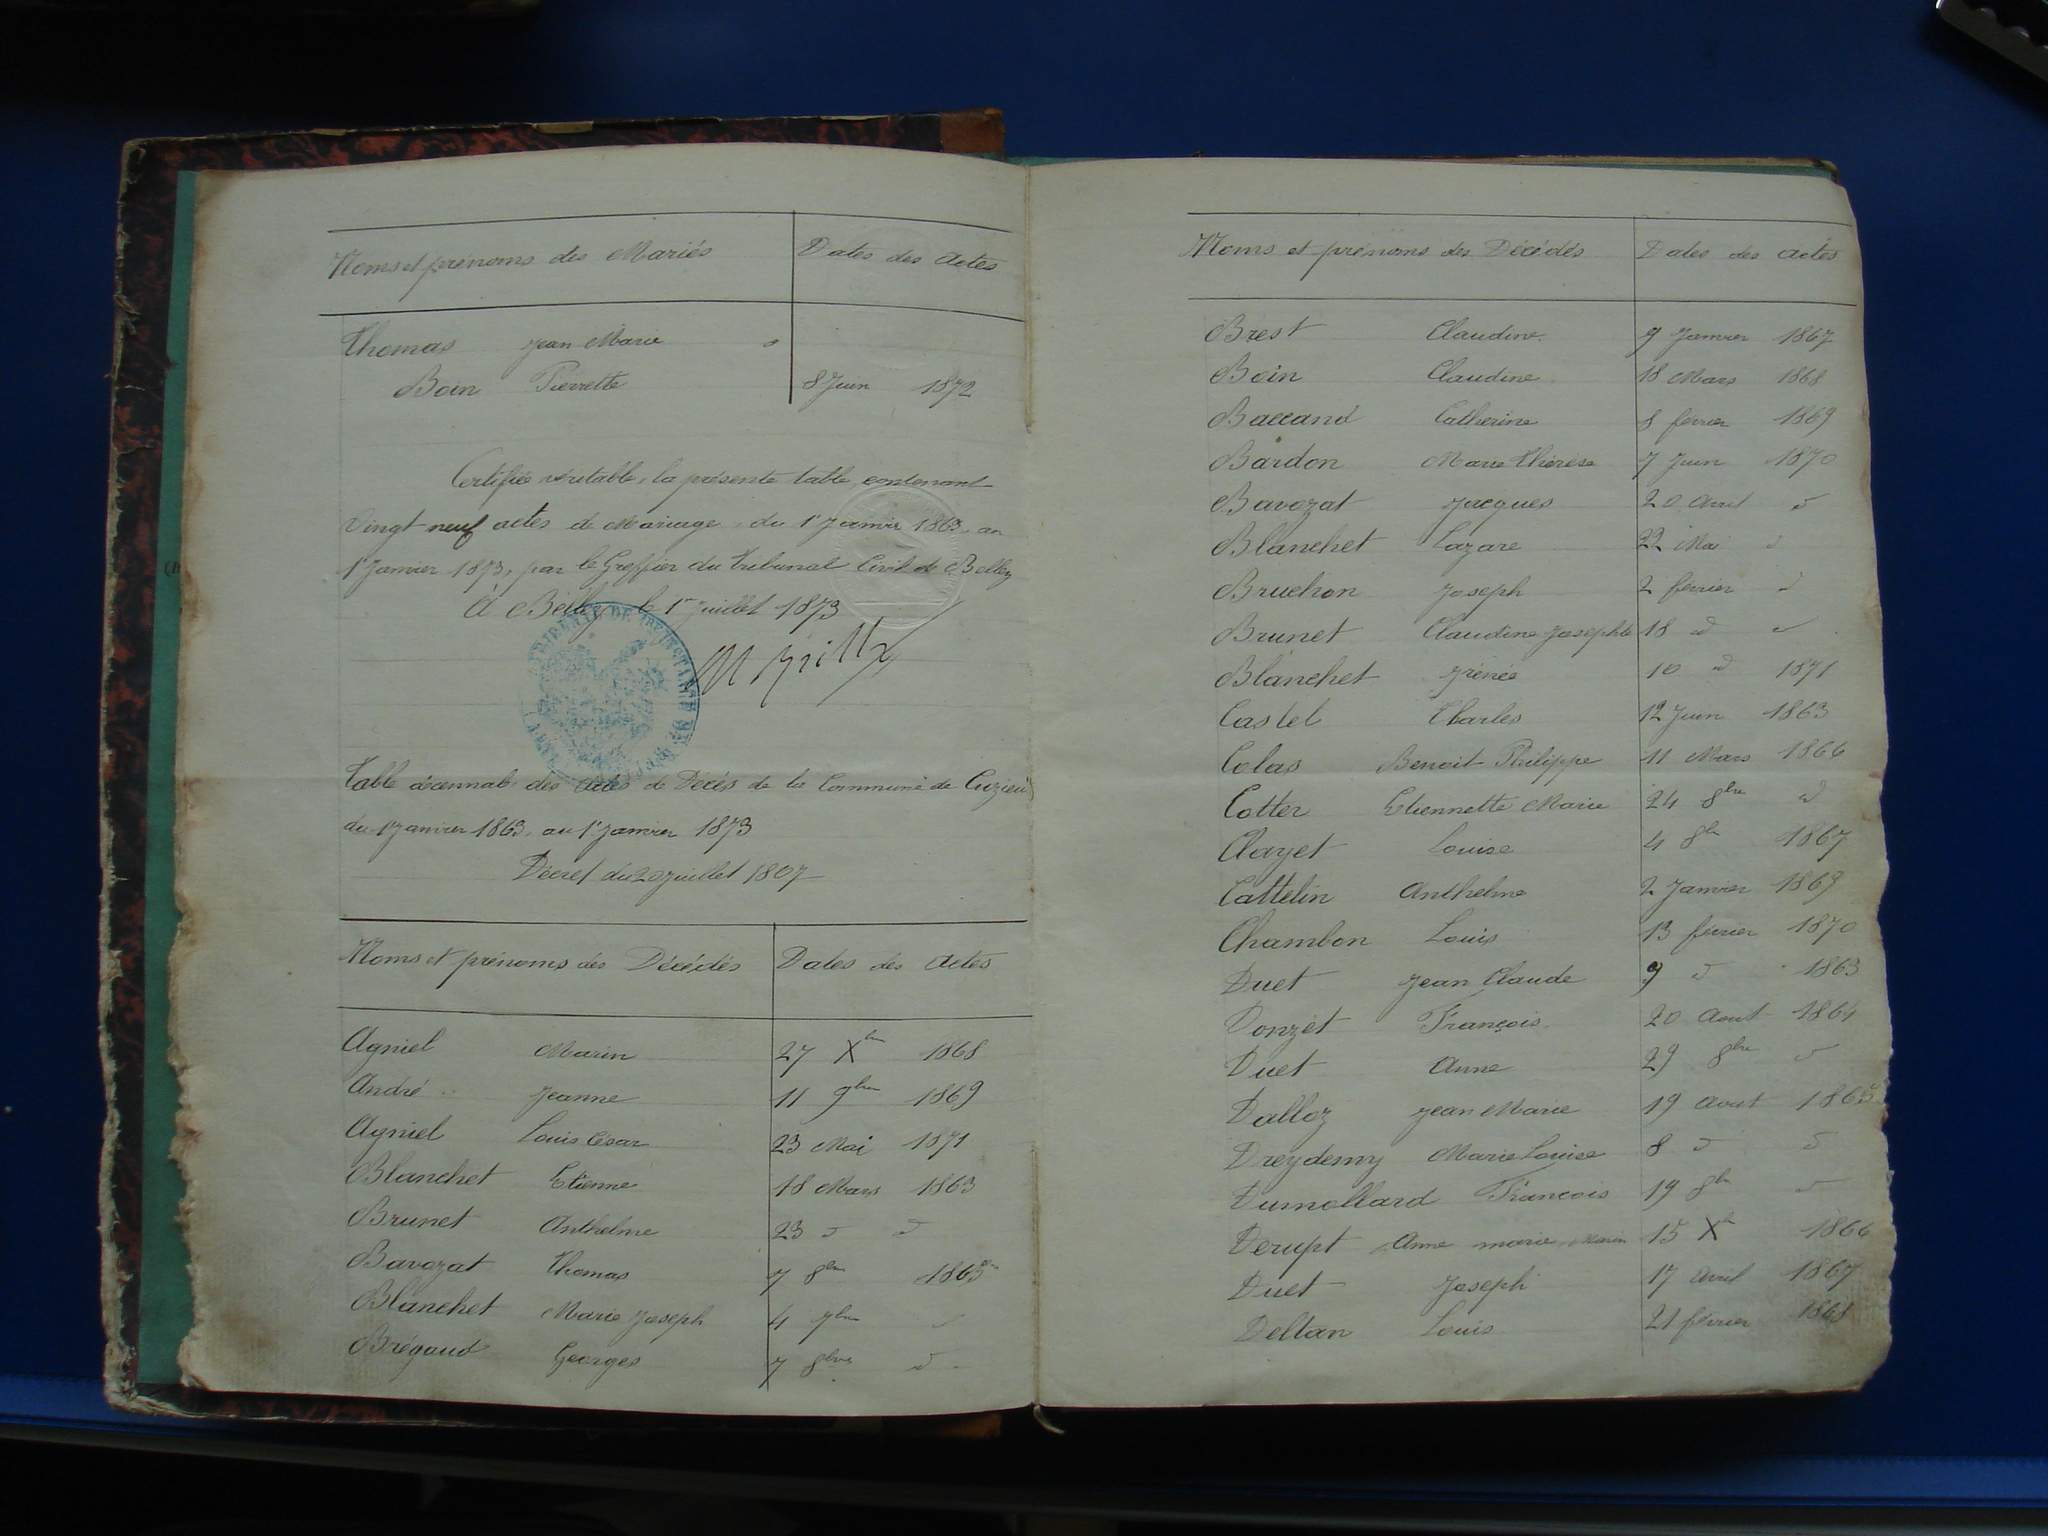 Noms et prénoms des Mariés Dates des Actes
Thomas Jean Marie
Boin Pierrette 8 Juin 1872
Certifiée véritable, la présente table, contenant
Vingt neuf actes de Mariage du 1er Janvier 1863 au
1er Janvier 1873, par le Greffier du Tribunal Civil de Belley
À Belley le 1er Juillet 1873
TRIBUNAL DE 1RE INSTANCE DE
Table décennale des Actes de Décès de la Commune de Cuzieu
du 1er Janvier 1863 au 1er Janvier 1873
Décret du 20 Juillet 1807
Noms et prénoms des Décédés Dates des Actes
Agniel Marin 27 Xbre 1868
André Jeanne 11 9bre 1869
Agniel Louis César 23 Mai 1871
Blanchet Etienne 18 Mars 1863
Brunet Anthelme 23 d d
Bavozat Thomas 7 8bre 1865
Blanchet Marie Joseph 4 7bre d
Brégaud Georges 7 8bre d
Noms et prénoms des Décédés Dates des Actes
Brest Claudine 9 Janvier 1867
Boin Claudine 18 Mars 1868
Baccand Catherine 8 février 1869
Bardon Marie Thérèse 7 Juin 1870
Bavozat Jacques 20 Avril d
Blanchet Lazare 22 Mai d
Bruchon Joseph 2 février d
Brunet Claudine Josephte 18 d d
Blanchet Irénée 10 d 1871
Castel Charles 12 Juin 1863
Colas Benoit Philippe 11 Mars 1866
Cotter Etiennette Marie 24 8bre d
Clayet Louise 4 8bre 1867
Cattelin Anthelme 2 Janvier 1869
Chambon Louis 13 février 1870
Duet Jean Claude 9 d 1863
Donzet François 20 Aout 1864
Duet Anne 29 8bre d
Dalloz Jean Marie 19 Aout 1865
Dreydemy Marie Louise 8 d d
Dumollard François 19 8bre d
Derupt Anne marie 15 Xbre 1866
Duet Joseph 17 Avril 1867
Deltan Louis 21 février 1868